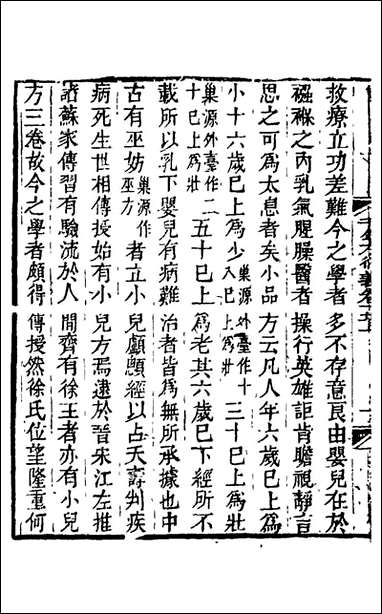 救療立功差難今之學者多不存意良由嬰兒在於
襁褓之內乳氣腥臊醫者操行英雄詎肯瞻視靜言
思之可為太息者矣小品方云凡人年六歲已上為
小十六歲已上為少巢源外臺作十八已上為壯三十已上為壯
巢源外臺作二十已上為壯五十已上為老其六歲已下經所不
載所以乳下嬰兒有病難治者皆為無所承據也中
古有巫妨巢源作巫方者立小兒顱顖經以占夭壽判疾
病死生世相傳授始有小兒方焉逮於晉宋江左推
諸蘇家傳習有驗流於人間齊有徐王者亦有小兒
方三卷故今之學者頗得傳授然徐氏位望隆重何